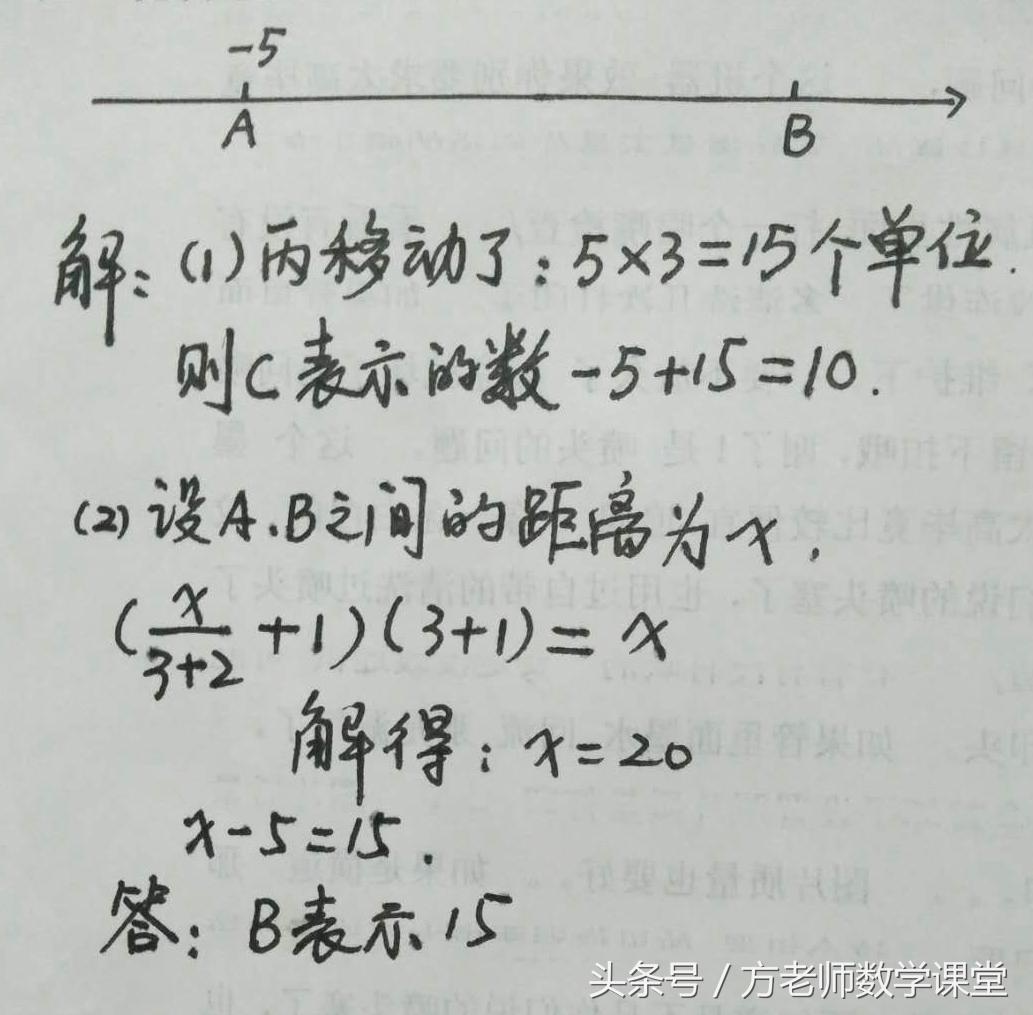 -5
A B
解：(1)丙移动了：5×3=15个单位.
则C表示的数-5+15=10.
(2)设A、B之间的距离为x，
(x/(3+2)+1)(3+1)=x
解得：x=20
x-5=15.
答：B表示15
头条号 / 方老师数学课堂